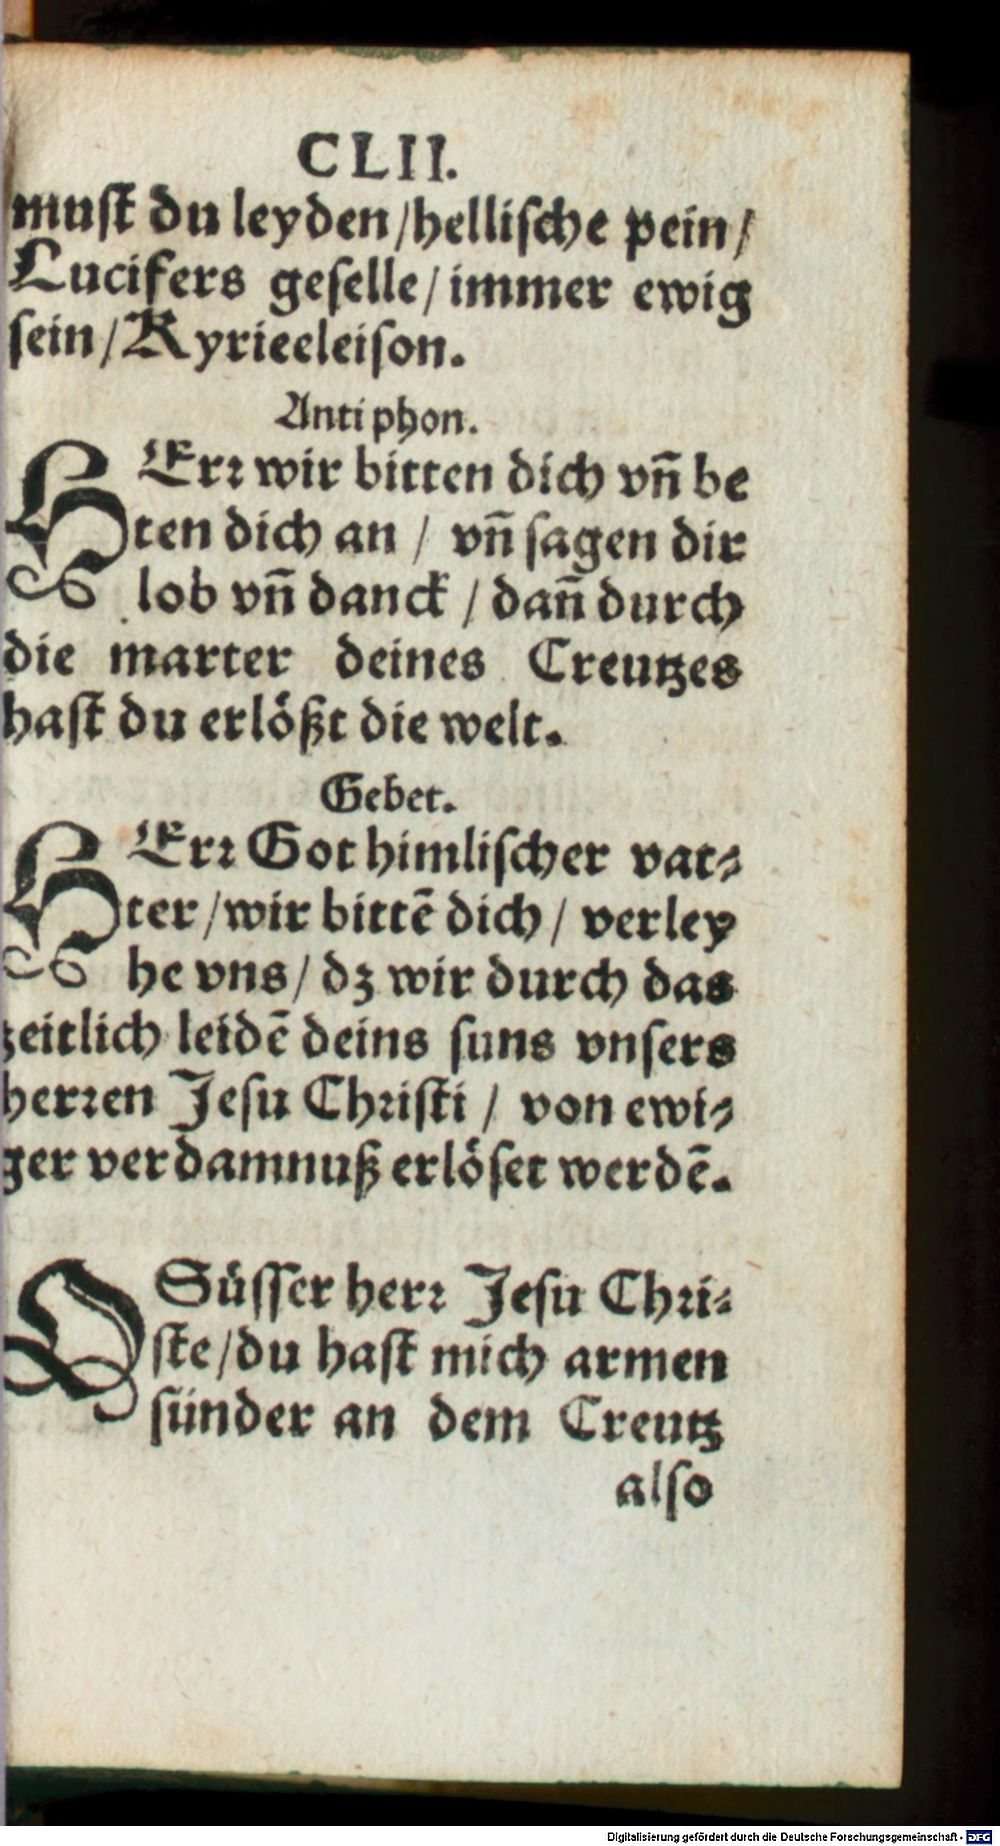 CLII.
must du leyden/hellische pein/
Lucifers geselle/immer ewig
sein/Kyrieeleison.
Antiphon.
HErr wir bitten dich vñ be
ten dich an / vñ sagen dir
lob vñ danck / dañ durch
die marter deines Creutzes
hast du erlößt die welt.
Gebet.
HErr Got himlischer vat-
ter/wir bittē dich/ verley
he vns/ dz wir durch das
zeitlich leidē deins suns vnsers
herren Jesu Christi / von ewi-
ger verdamnuß erlöset werdē.
O Süsser herr Jesu Chri-
ste/du hast mich armen
sünder an dem Creutz
also
Digitalisierung gefördert durch die Deutsche Forschungsgemeinschaft - DFG